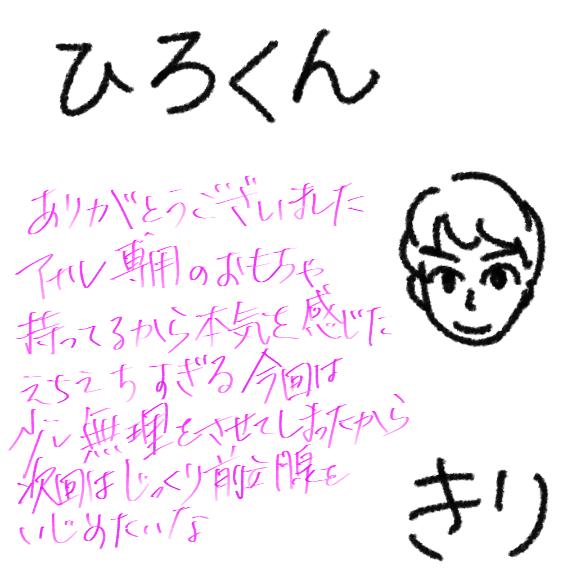 ひろくん
ありがとうございました
アナル専用のおもちゃ
持ってるから本気を感じた
えちえちすぎる今回は
少し無理をさせてしまったから
次回はじっくり前立腺を
いじめたいな
きり